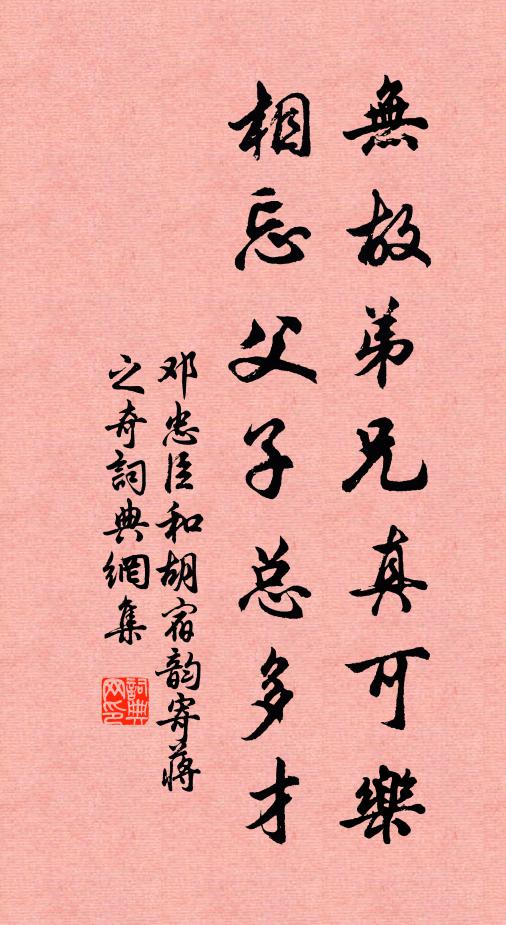 無故弟兄真可樂
相忘父子总多才
邓忠臣和胡宿韵寄蒋
之奇詞典網集
詞典
网印